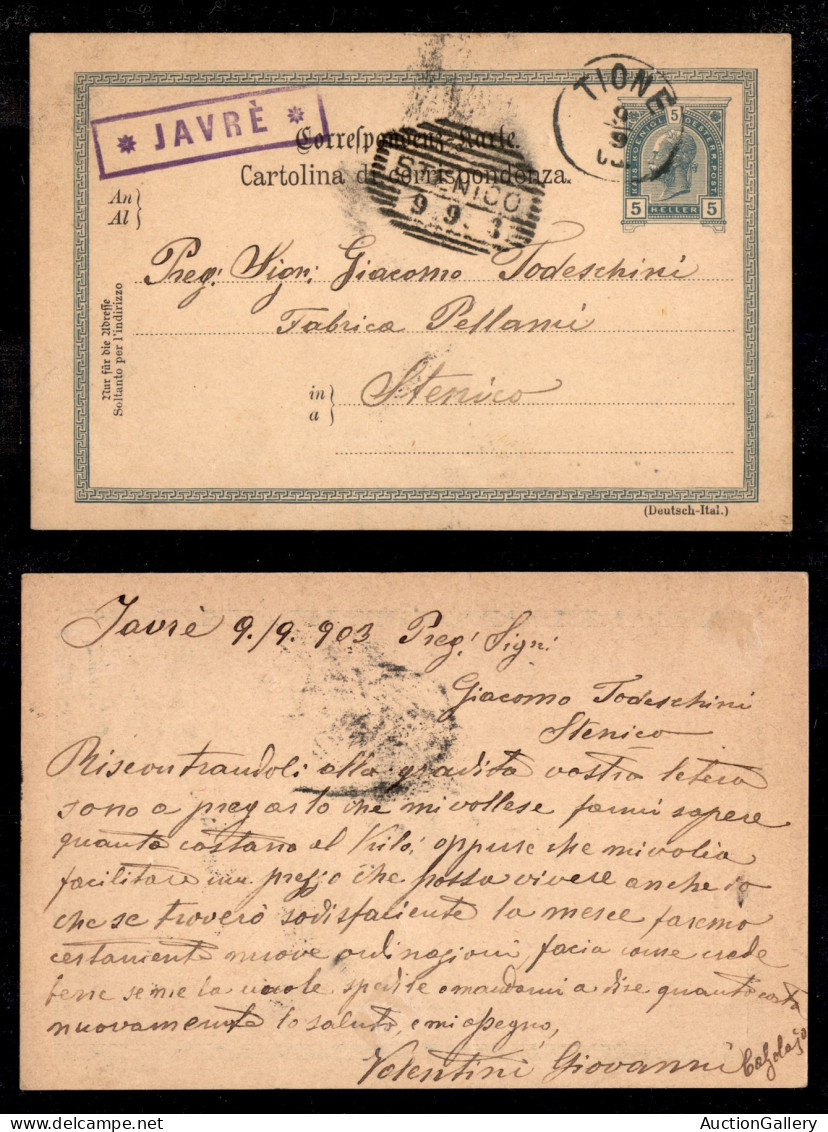 * JAVRÈ *
Correspondenz-Karte.
Cartolina di corrispondenza.
STENICO
9 9. 3
TIONE
9
9
KAIS. KOENIGL. OESTERR. POST
5
5 HELLER 5
An
Al
Nur für die Adresse
Soltanto per l'indirizzo
Preg: Sign: Giacomo Todeschini
Fabrica Pellami
in
a
Stenico
(Deutsch-Ital.)
Javrè 9./9. 903 Preg! Sign:
Giacomo Todeschini
Stenico
Riscontrandoli alla gradita vostra letera
sono a pregarlo che mi vollese farmi sapere
quanto costano al Kilo: oppure che mi volia
facilitare un prezzo che possa vivere anche io
che se troverò sodisfaciente la merce faremo
certamente nuove ordinazioni, facia come crede
bene se me la vuole spedire o mandarmi a dire quanto costa
nuovamente lo saluto, e mi
Valentini Giovanni Calzolajo
AuctionGallery